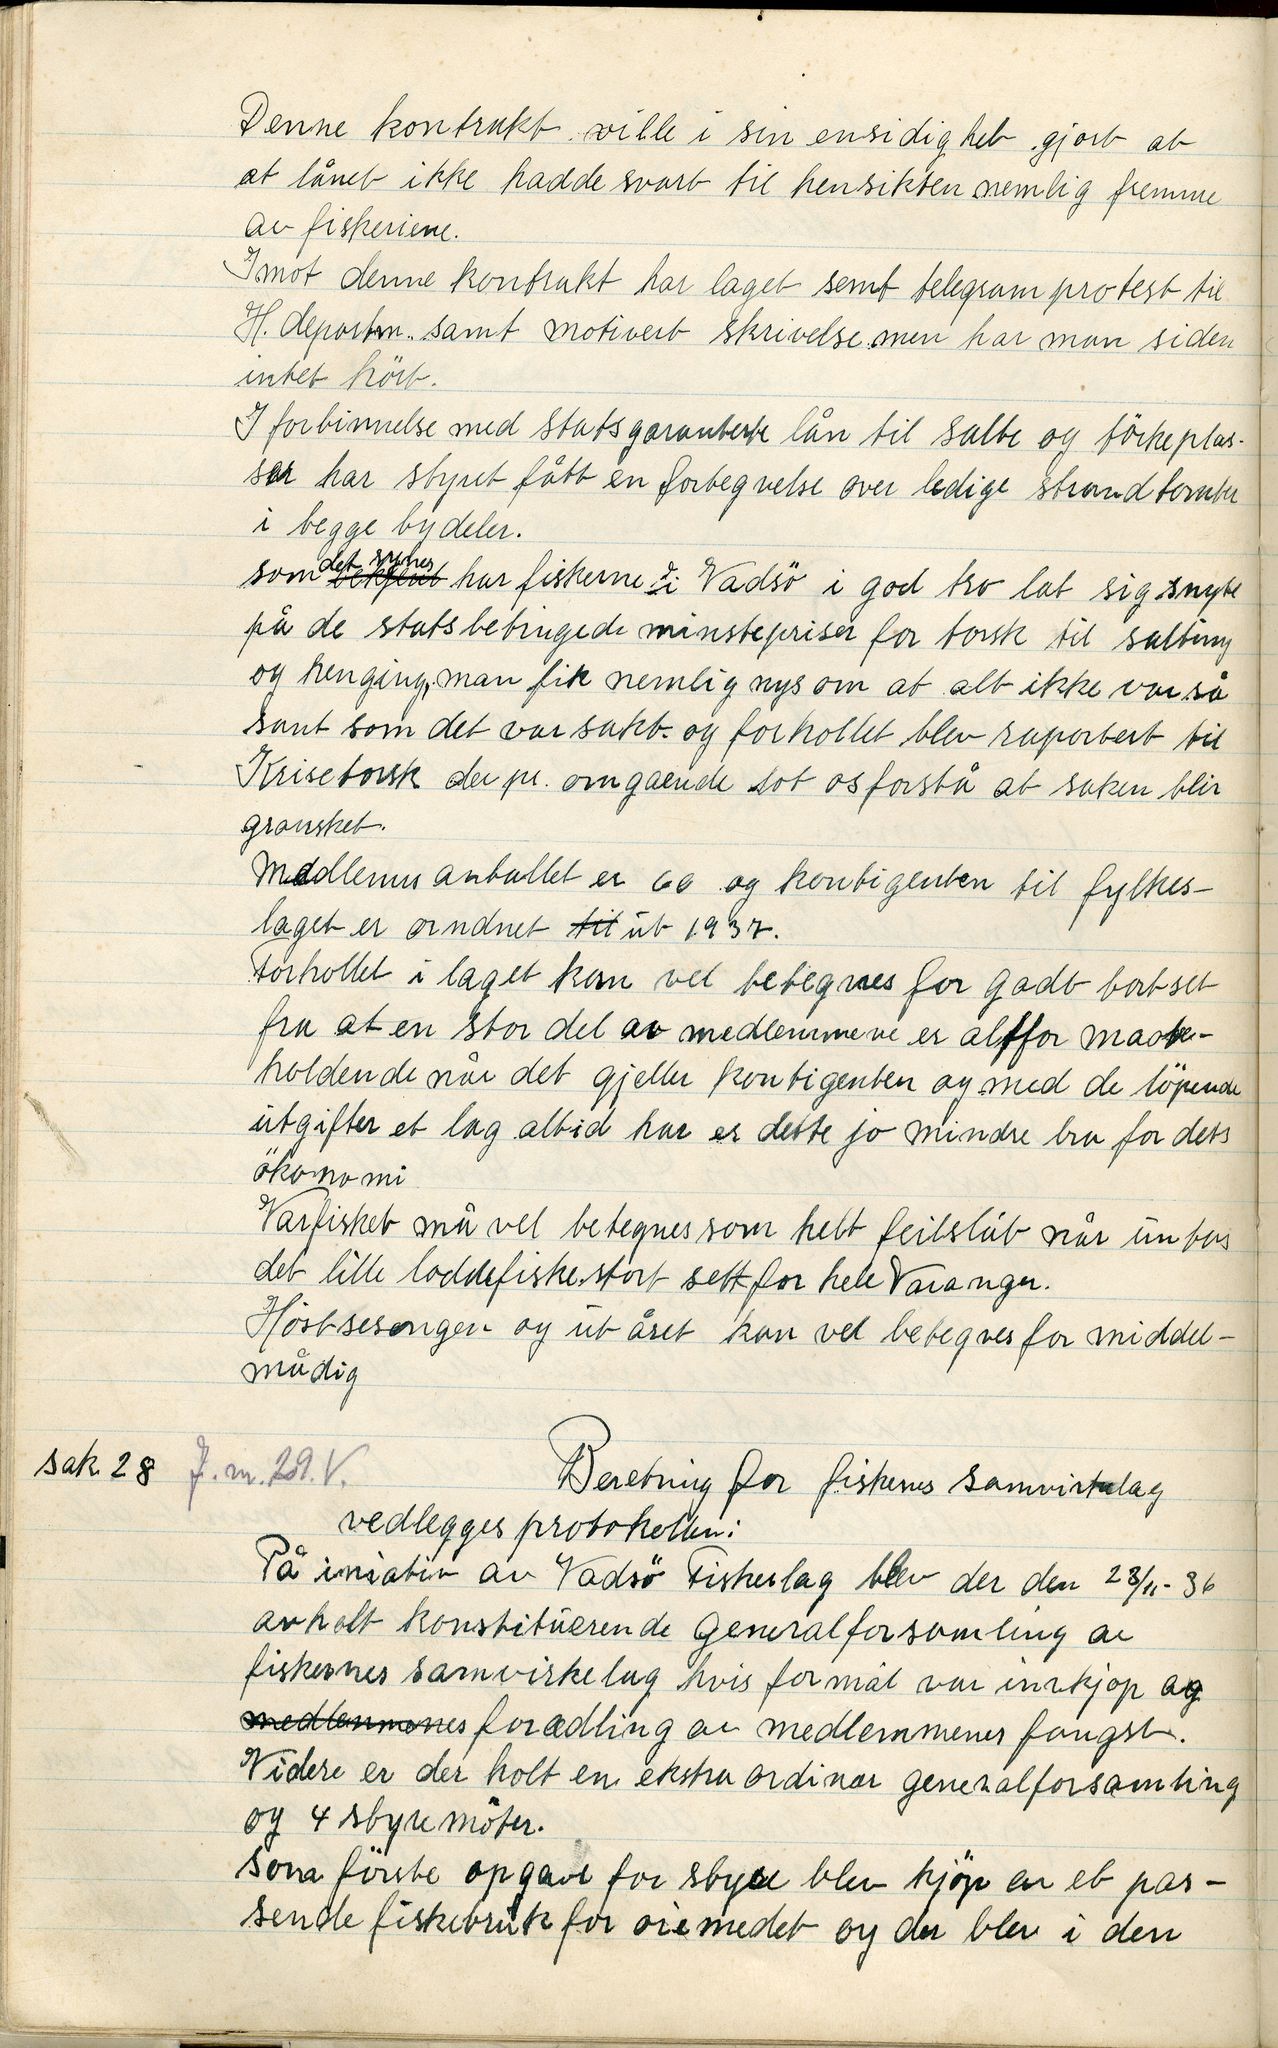 Denne kontrakt ville i sin ensidighet gjort at
at lånet ikke hadde svart til hensikten nemlig fremme
av fiskeriene.
Imot denne kontrakt har laget sent telegram protest til
H. departm. samt motivert skrivelse men har man siden
intet hört.
I forbinnelse med statsgaranterte lån til salte og törkeplas-
ser har styret fått en fortegnelse over ledige strandtomter
i begge bydeler.
som det synes har fiskerne i Vadsö i god tro lat sig snyte
på de statsbetingede minstepriser for torsk til salting
og henging, man fik nemlig nys om at alt ikke var så
sant som det var sakt. og forholdet blev raportert til
Krisetorsk der pr. omgående lot os forstå at saken blir
gransket.
Medlemsantallet er 60 og kontigenten til fylkes-
laget er orndnet til ut 1937.
Forhollet i laget kan vel betegnes for godt bortset
fra at en stor del av medlemmene er altfor mote-
holdende når det gjeller kontigenten og med de löpende
utgifter et lag altid har er dette jo mindre bra for dets
ökonomi
Vårfisket må vel betegnes som helt feilslåt når untas
det lille loddefiske. stort sett for hele Varanger.
Höstsesongen og ut året kan vel betegnes for middel-
mådig
sak 28 J. nr. 29. V. Beretning for fiskenes samvirkelag
vedlegges protokollen:
På iniativ av Vadsö Fiskerlag blev der den 23/11-36
avholt konstituerende generalforsamling av
fiskernes samvirkelag hvis formål var innkjøp og
medlemmenes foredling av medlemmenes fangst.
Videre er der holt en ekstra ordinær generalforsamling
og 4 styremöter.
som förste opgave for styre blev kjöp av et pas-
sende fiskebruk for öiemedet og der blev i den